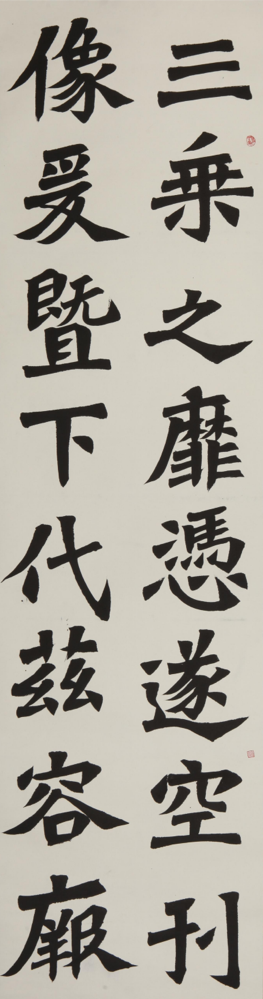 三乗之靡憑遂空刊
像爰暨下代茲容